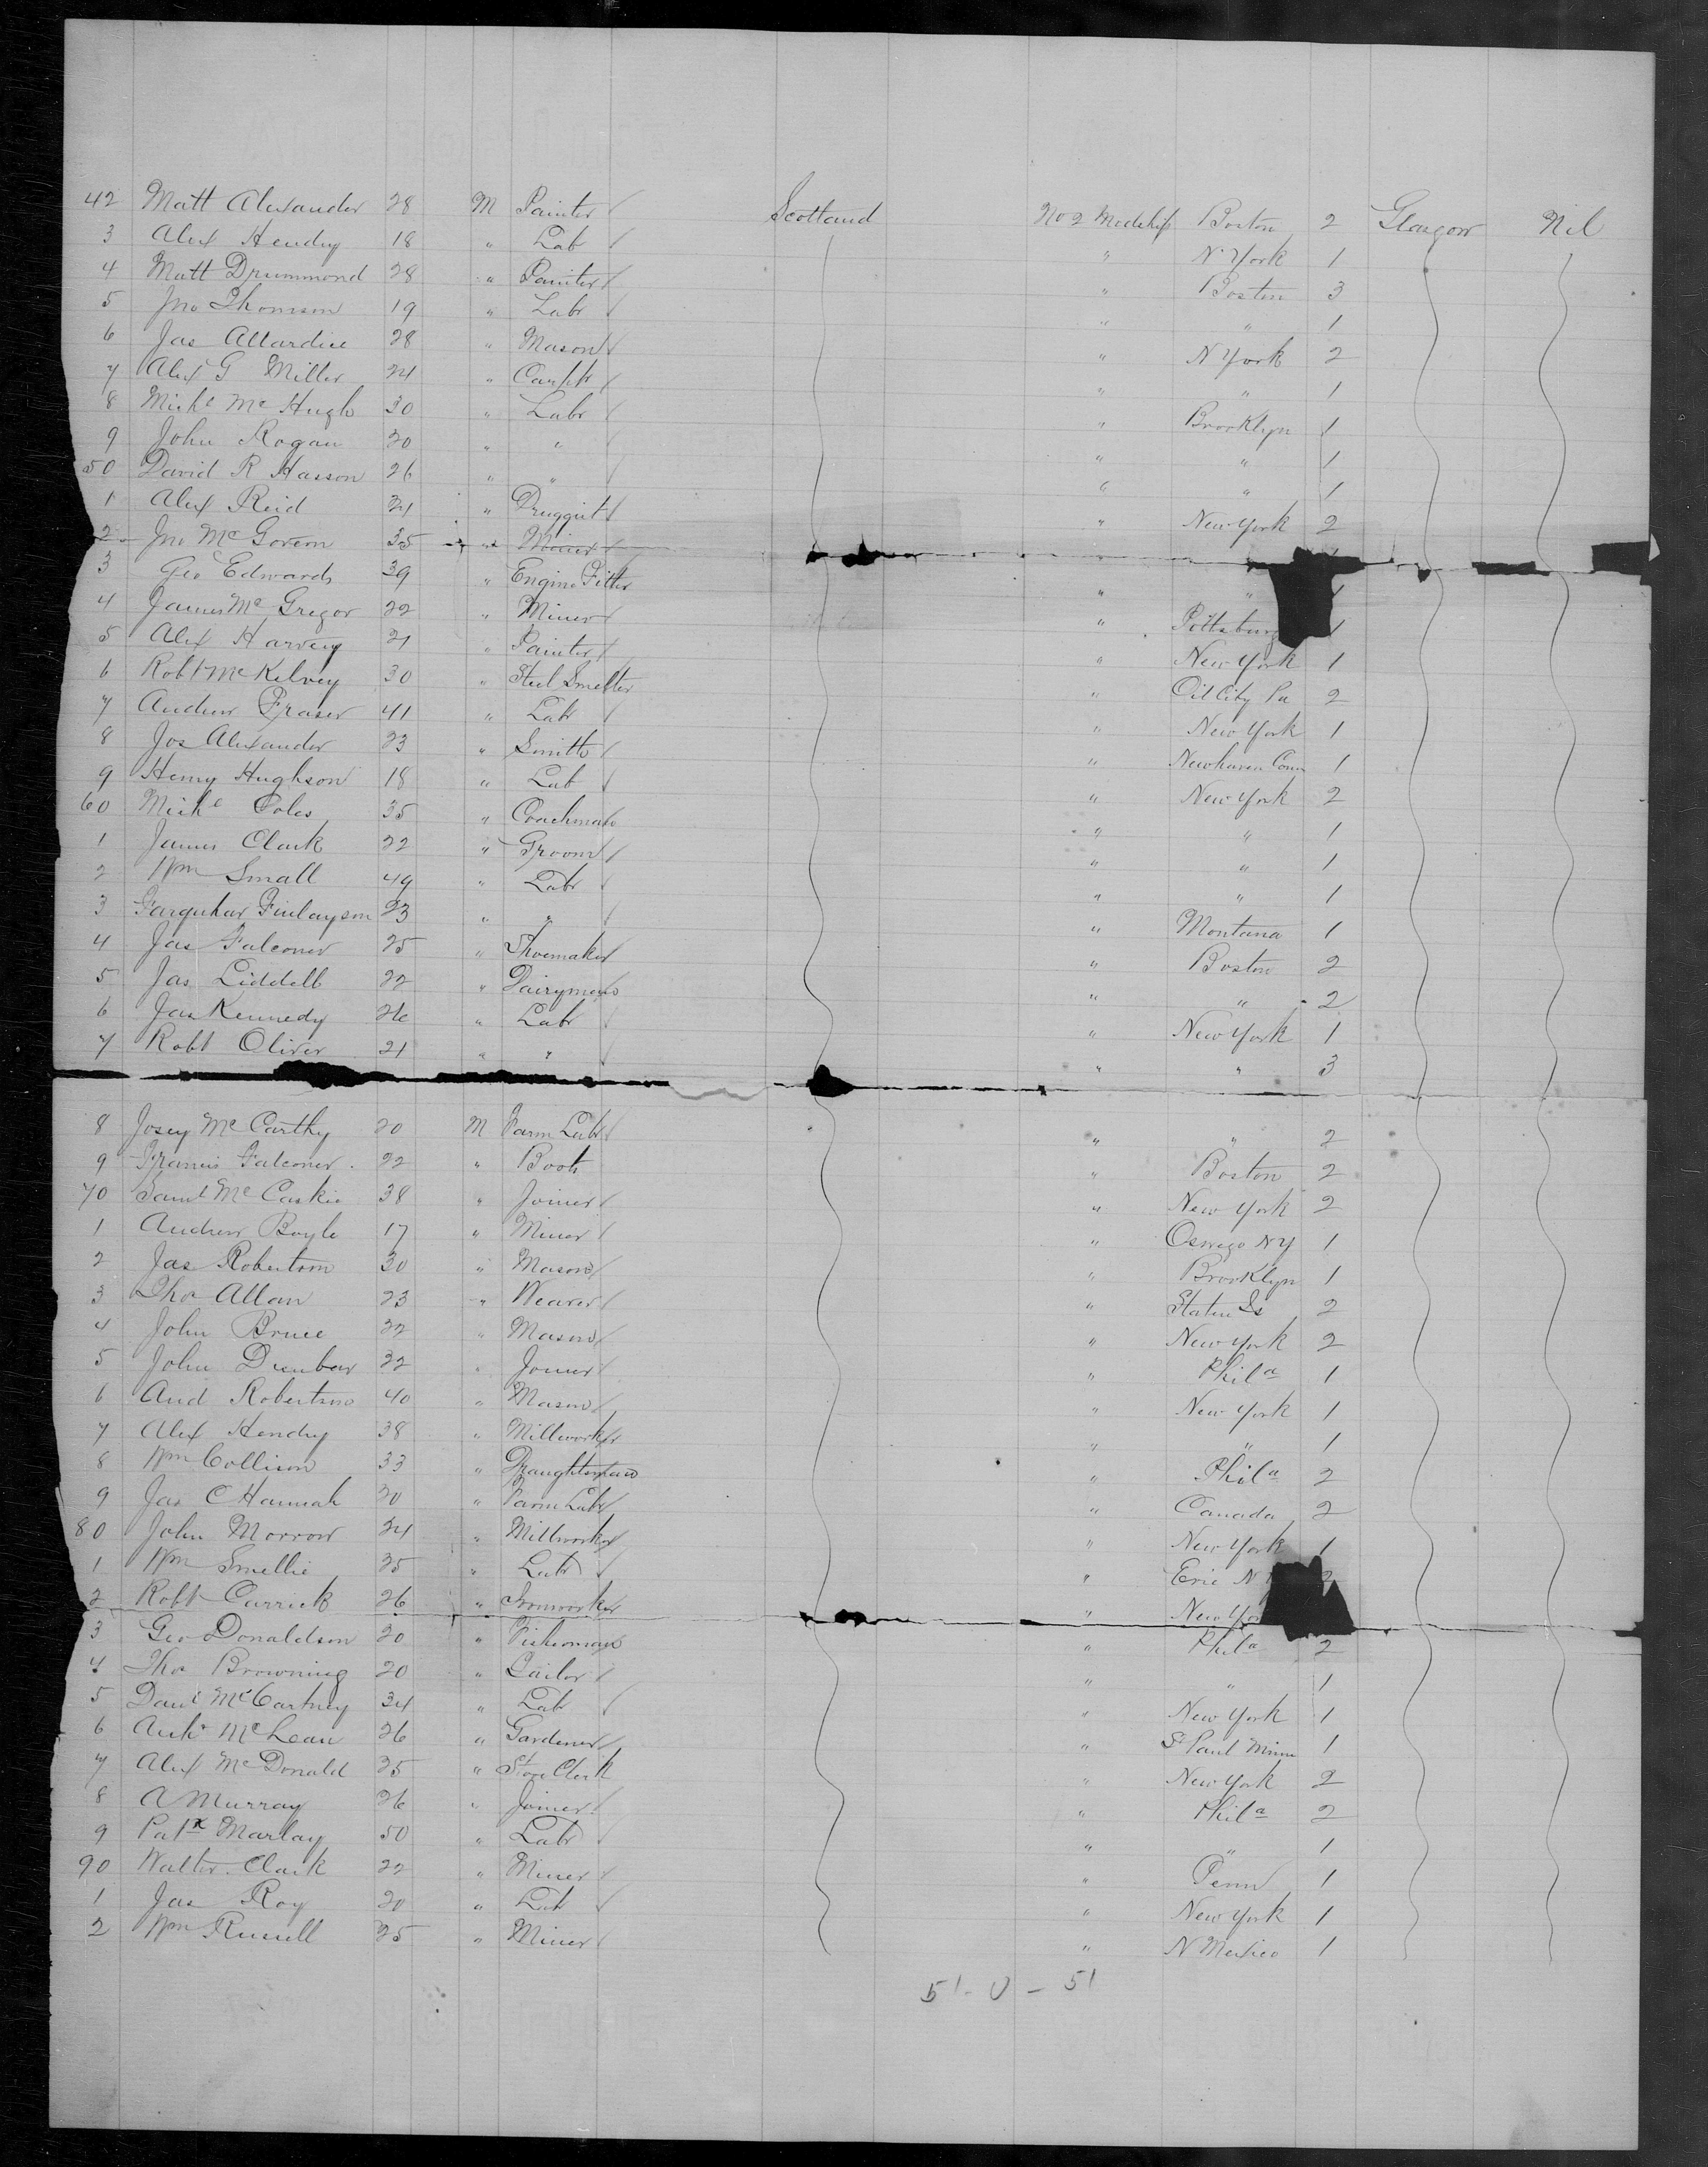 42 Matt Alexander 28 M Painter Scotland No 2 Midship Boston 2 Glasgow Nil
3 Alex Hendry 18 " Lab " N. York 1
4 Matt Drummond 28 " Painter " Boston 3
5 Jno Thomson 19 " Labr " " 1
6 Jas Allardice 28 " Mason " N York 2
7 Alex G Miller 24 " " " 1
8 Michl McHugh 30 " Labr " Brooklyn 1
9 John Rogan 20 " " " " 1
50 David R Hasson 26 " " " " 1
1 Alex Reid 21 " Druggist " New York 2
2 Jno McGovern 35 " Miner "
3 Geo Edwards 39 " Engine Fitter " " 1
4 James McGregor 22 " Miner " Pittsburg 1
5 Alex Harvey 21 " Painter " New York 1
6 Robt McKelvey 30 " Steel Smelter " Oil City Pa 2
7 Andrew Fraser 41 " Labr " New York 1
8 Jos Alexander 23 " Smith " Newhaven Conn 1
9 Henry Hughson 18 " Lab " New York 2
60 Michl Coles 35 " Coachman " " 1
1 James Clark 22 " Groom " " 1
2 Wm Small 49 " Labr " " 1
3 Farquhar Finlayson 23 " " " Montana 1
4 Jas Falconer 25 " Shoemaker " Boston 2
5 Jas Liddell 22 " Dairyman " " 2
6 Jas Kennedy 26 " Labr " New York 1
7 Robt Oliver 21 " " " " 3
8 Josey McCarthy 20 M Farm Labr " " 2
9 Francis Falconer 22 " " Boston 2
70 Saml McCaskie 38 " Joiner " New York 2
1 Andrew Boyle 17 " Miner " Oswego NY 1
2 Jas Robertson 30 " Mason " Brooklyn 1
3 Thos Allan 23 " Weaver " Staten Is 2
4 John Bruce 32 " Mason " New York 2
5 John Dunbar 32 " Joiner " Phila 1
6 And Robertson 40 " Mason " New York 1
7 Alex Hendry 38 " Millworker " " 1
8 Wm Collison 33 " Draughtsman " Phila 2
9 Jas C Hannah 20 " Farm Labr " Canada 2
80 John Morrow 24 " Millworker " New York 1
1 Wm Smellie 35 " Labr " Erie N 2
2 Robt Carrick 26 " Ironworker " New Yor
3 Geo Donaldson 20 " Fisherman " Phila 2
4 Thos Browning 20 " Tailor " " 1
5 Danl McCartney 34 " Lab " New York 1
6 Archd McLean 26 " Gardener " St Paul Minn 1
7 Alex McDonald 25 " Store Clerk " New York 2
8 A Murray 26 " Joiner " Phila 2
9 Patk Marlay 50 " Labr " " 1
90 Walter Clark 22 " Miner " Penn 1
1 Jas Roy 20 " Lab " New York 1
2 Wm Russell 25 " Miner " N Mexico 1
51 - 0 - 51